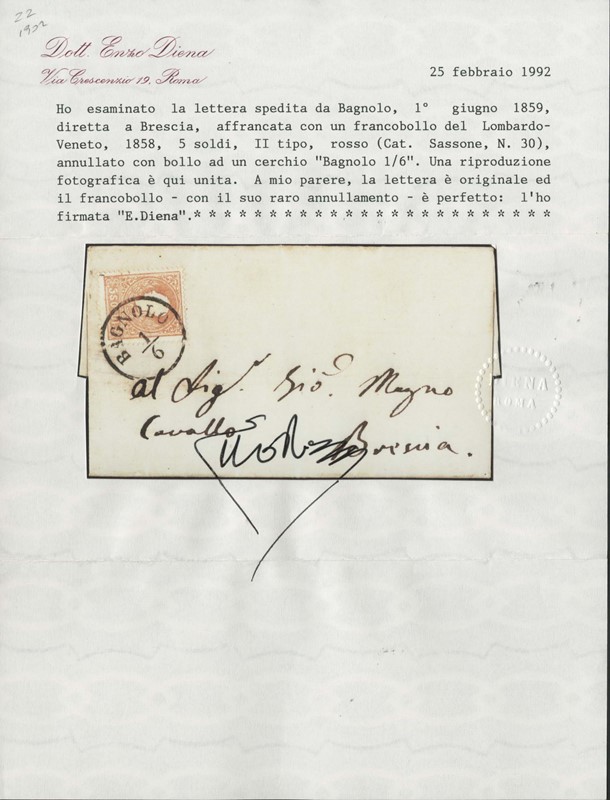 22
1992
Dott. Enzo Diena
Via Crescenzio 19, Roma
25 febbraio 1992
Ho esaminato la lettera spedita da Bagnolo, 1° giugno 1859,
diretta a Brescia, affrancata con un francobollo del Lombardo-
Veneto, 1858, 5 soldi, II tipo, rosso (Cat. Sassone, N. 30),
annullato con bollo ad un cerchio "Bagnolo 1/6". Una riproduzione
fotografica è qui unita. A mio parere, la lettera è originale ed
il francobollo - con il suo raro annullamento - è perfetto: l'ho
firmata "E.Diena".* * * * * * * * * * * * * * * * * * * * * * * *
BAGNOLO
1/6
al Sigr. Gio. Magno
Cavallo
Brescia.
DIENA
ROMA